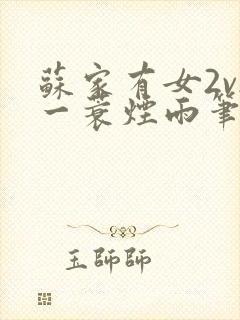 蘇家有女2v
一蓑煙雨筆
玉師師